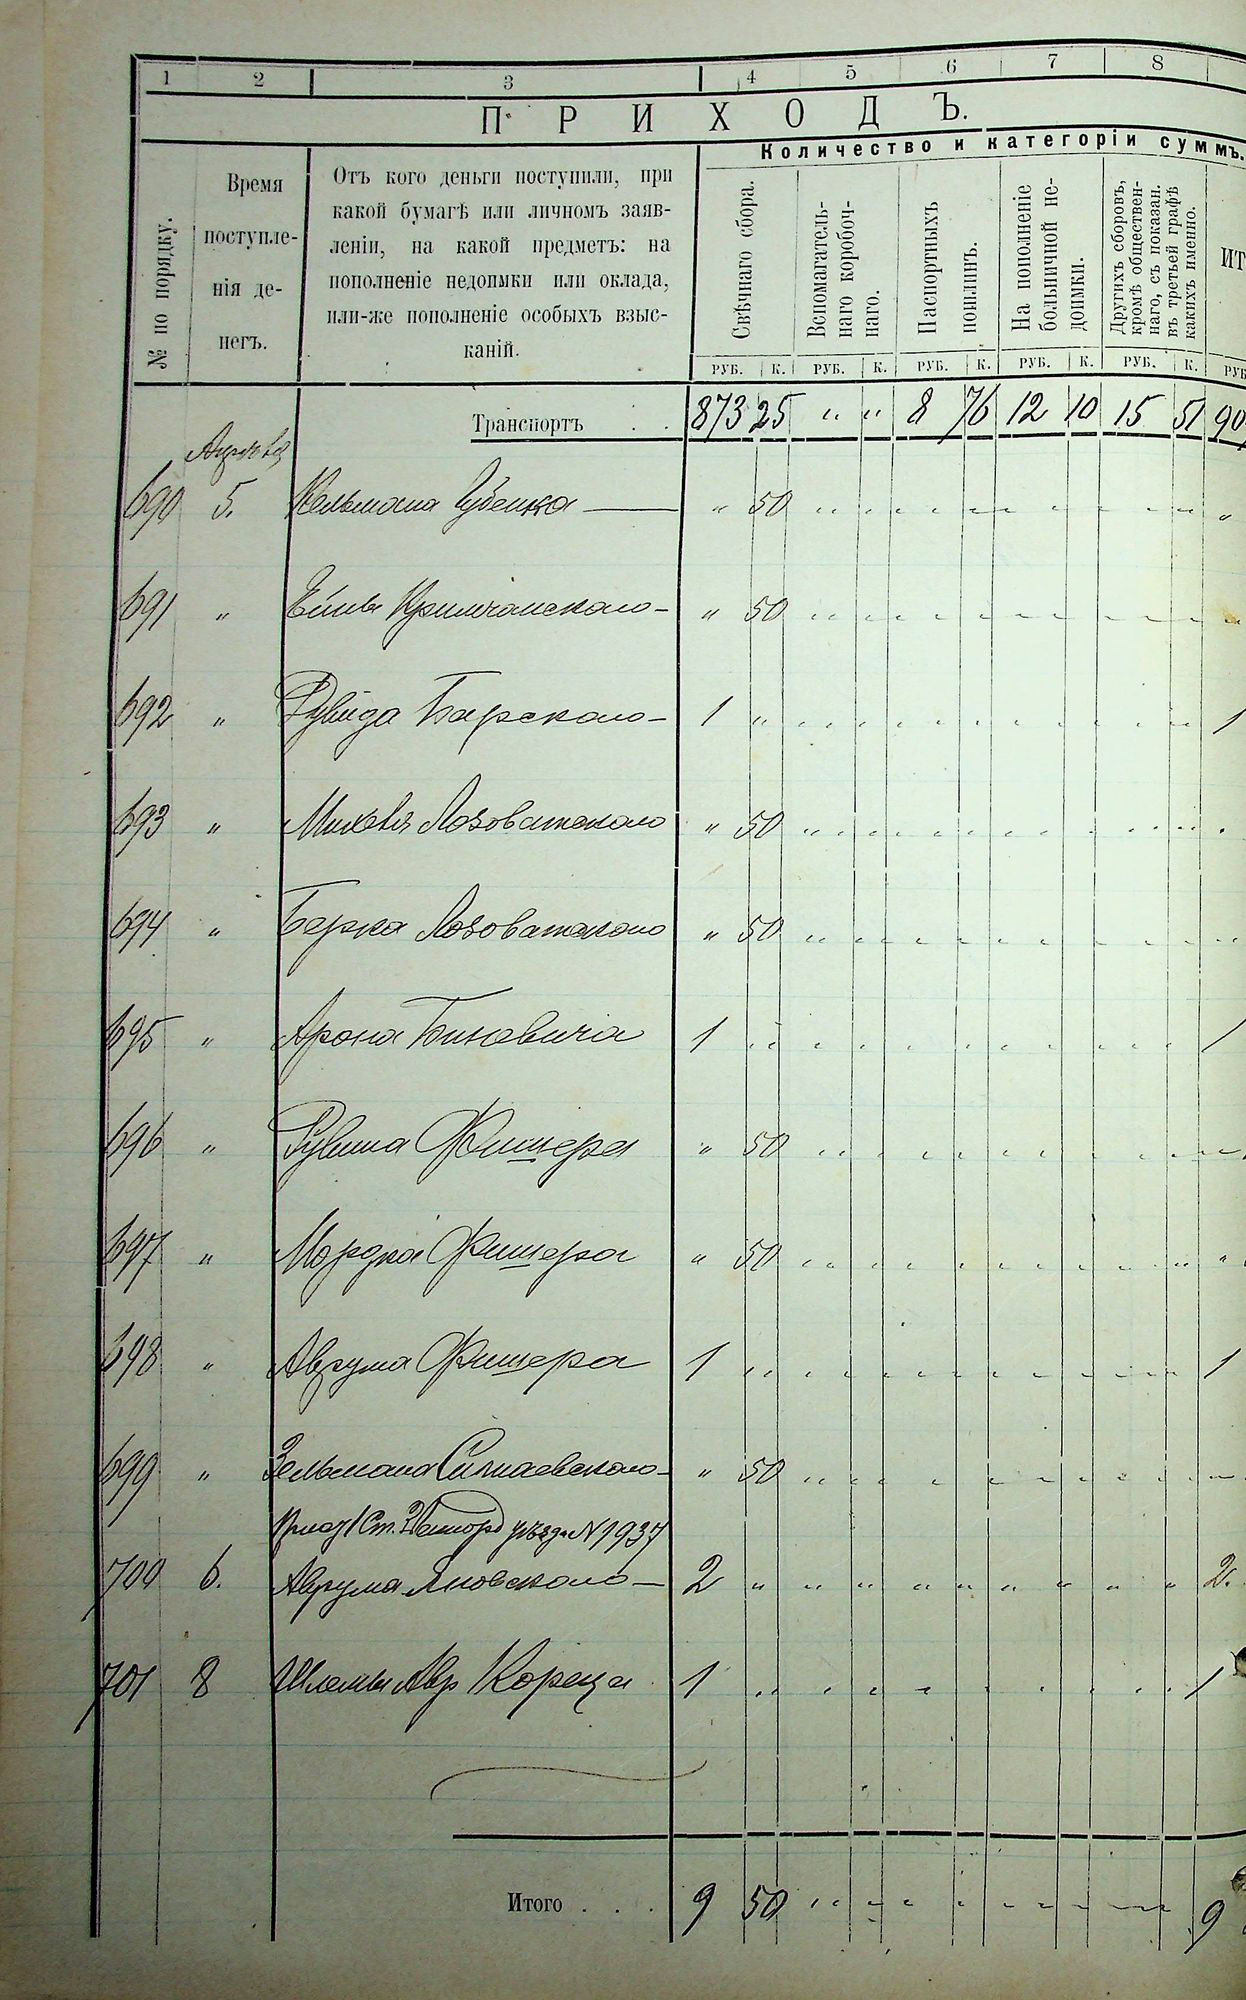 1 2 3 4 5 6 7 8
ПРИХОДЪ.
Количество и категоріи суммъ.
№ по порядку.
Время поступле-нія де-негъ.
Отъ кого деньги поступили, при
какой бумагѣ или личномъ заяв-
леніи, на какой предметъ: на
пополненіе недоимки или оклада,
или-же пополненіе особыхъ взыс-
каній.
Свѣчнаго сбора.
Вспомагатель-
наго коробоч-
наго.
Паспортныхъ
пошлинъ.
На пополненіе
больничной не-
доимки.
Другихъ сборовъ,
кромѣ обществен-
наго, съ показан.
въ третьей графѣ
какихъ именно.
ИТ
РУБ. К. РУБ. К. РУБ. К. РУБ. К. РУБ. К. РУБ
Транспортъ . . 873 25 " " 8 76 12 10 15 51 90
690 5. Кельмана Губенка — " 50
691 " Крымчанскаго - " 50
692 " Дувида Барскаго - 1 " 1
693 " Михеля Лозоватскаго " 50
694 " Берка Лозоватскаго " 50
695 " Арона Биновича 1 " 1
696 " Рувина Фишера " 50
697 " Мордка Фишера " 50
698 " Аврума Фишера 1 " 1
699 " Зельмана - " 50
№ 1937
700 6. Аврума Яновскаго — 2 " 2.
701 8 Шлемы Авр Кореца 1 " 1
Итого . . . 9 50 9